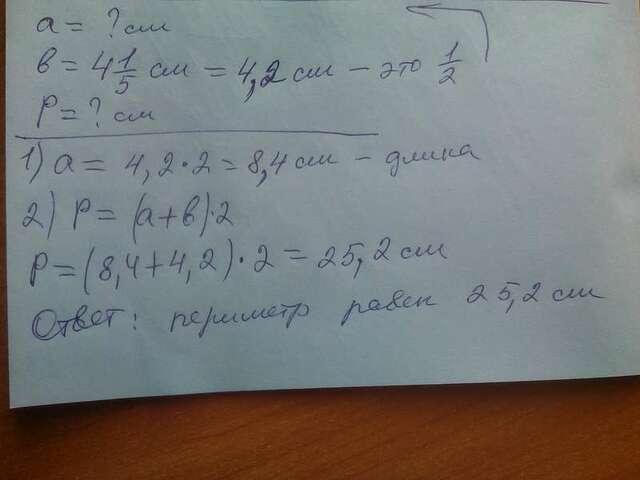 a = ? см
в = 4 1/5 см = 4,2 см – это 1/2
P = ? см
1) a = 4,2 · 2 = 8,4 см – длина
2) P = (a + в) · 2
P = (8,4 + 4,2) · 2 = 25,2 см
Ответ: периметр равен 25,2 см